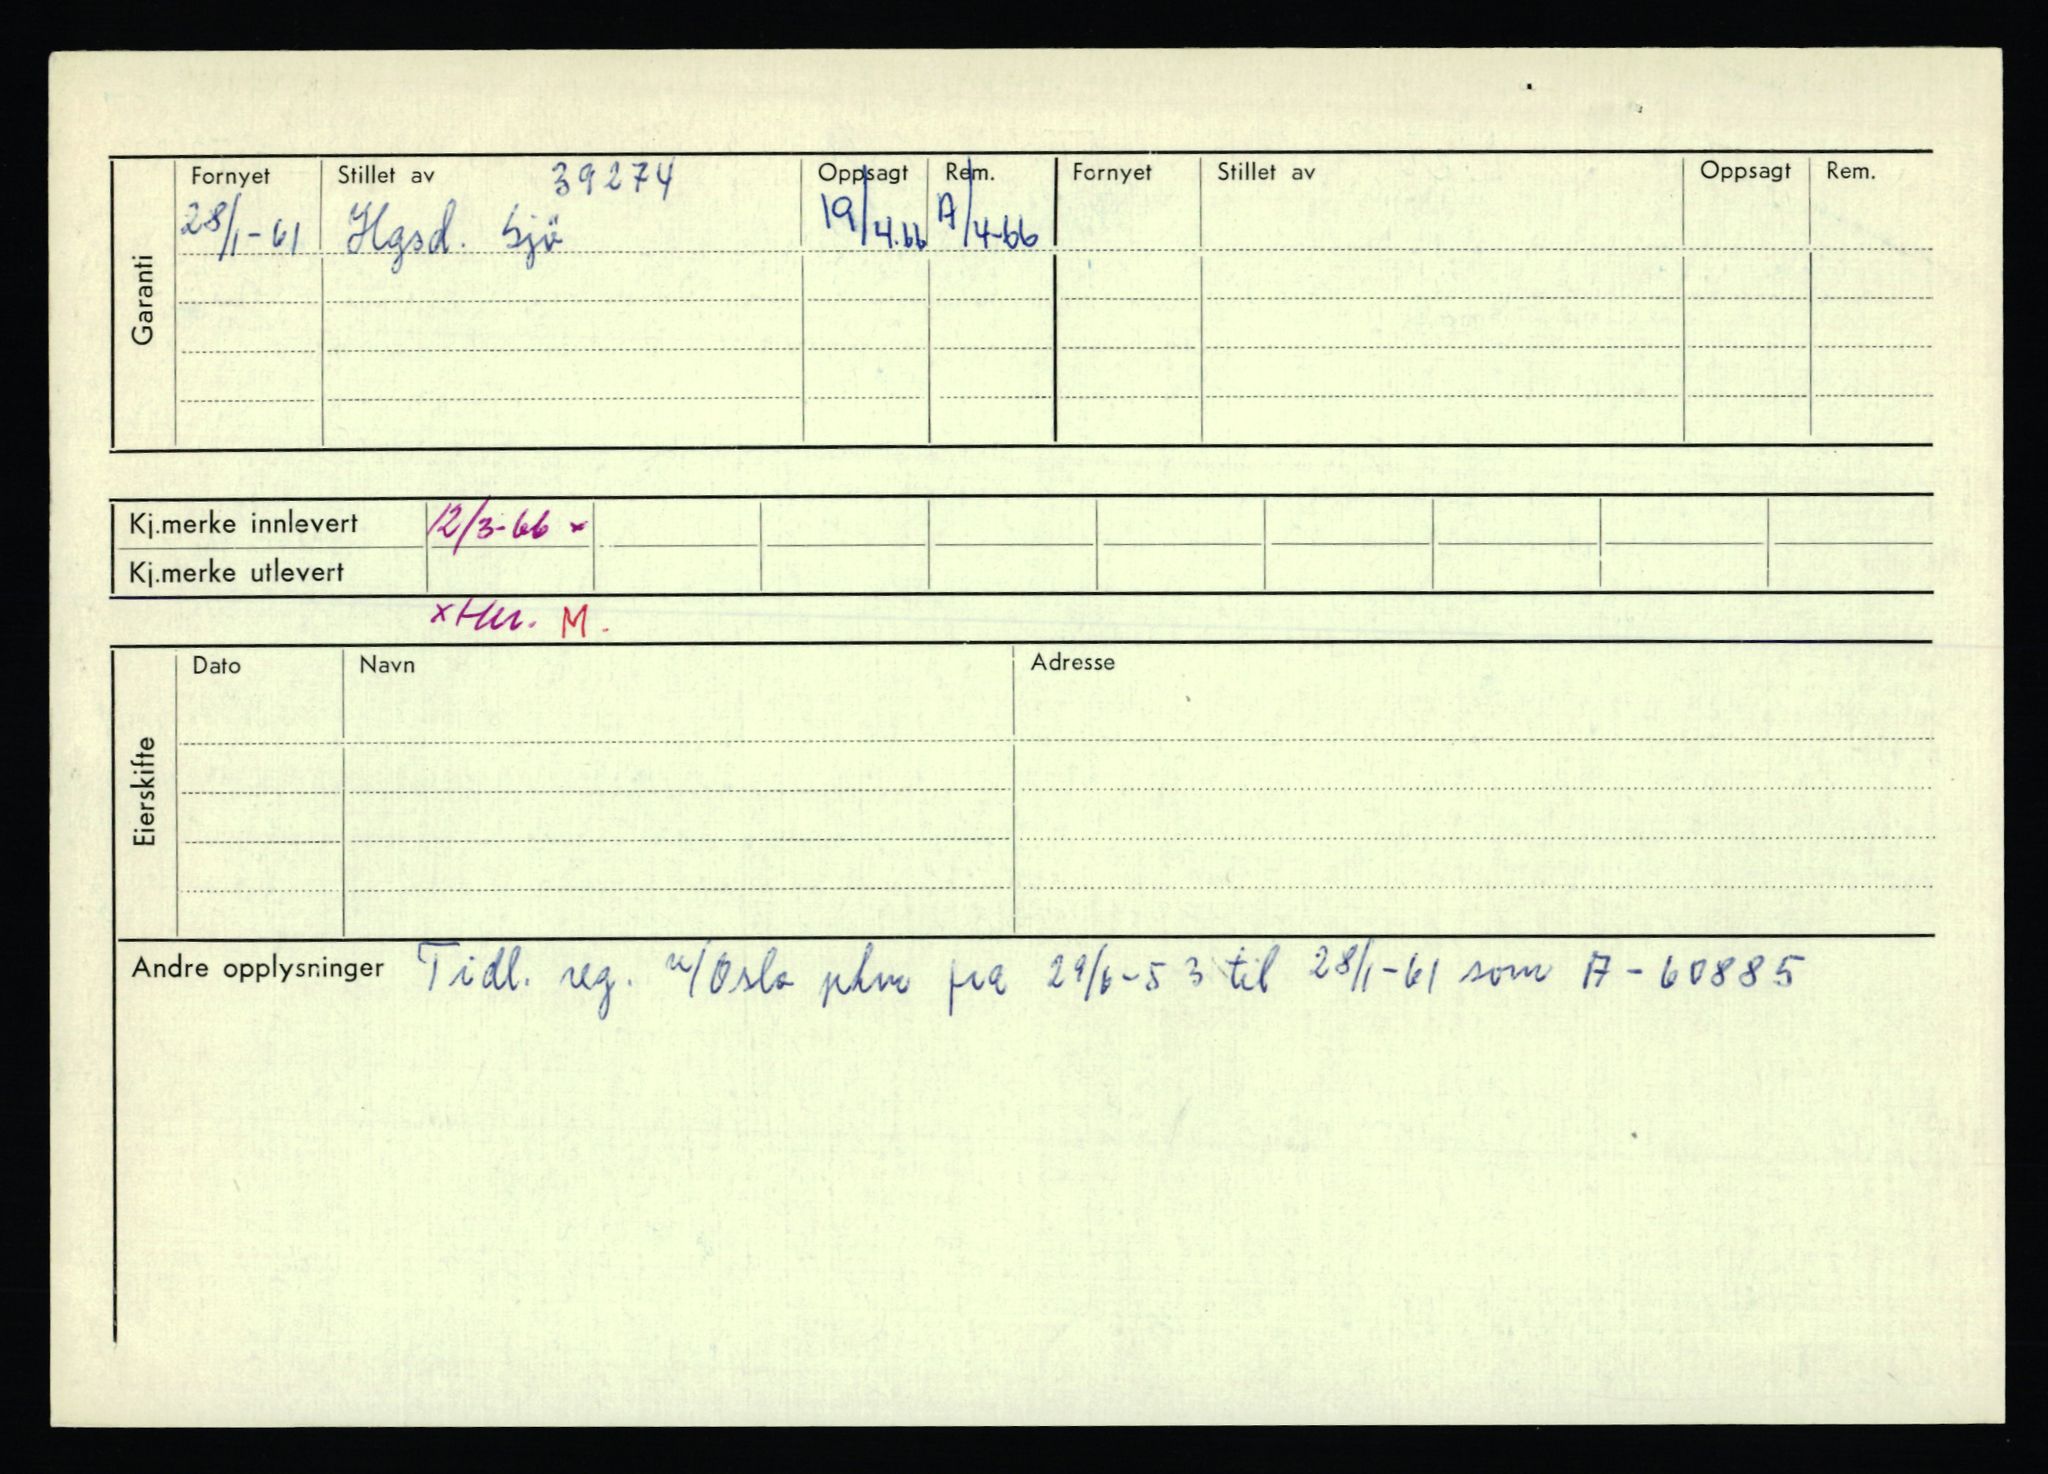 Garanti
Fornyet Stillet av 39274 Oppsagt Rem. Fornyet Stillet av Oppsagt Rem.
28/1-61 Hgsd. Sjö 19/4.66 A/4-66
Kj.merke innlevert 12/3-66 x
Kj.merke utlevert
x Her. M.
Eierskifte
Dato Navn Adresse
Andre opplysninger Tidl. reg. v/Oslo pkm fra 29/6-53 til 28/1-61 som A-60885